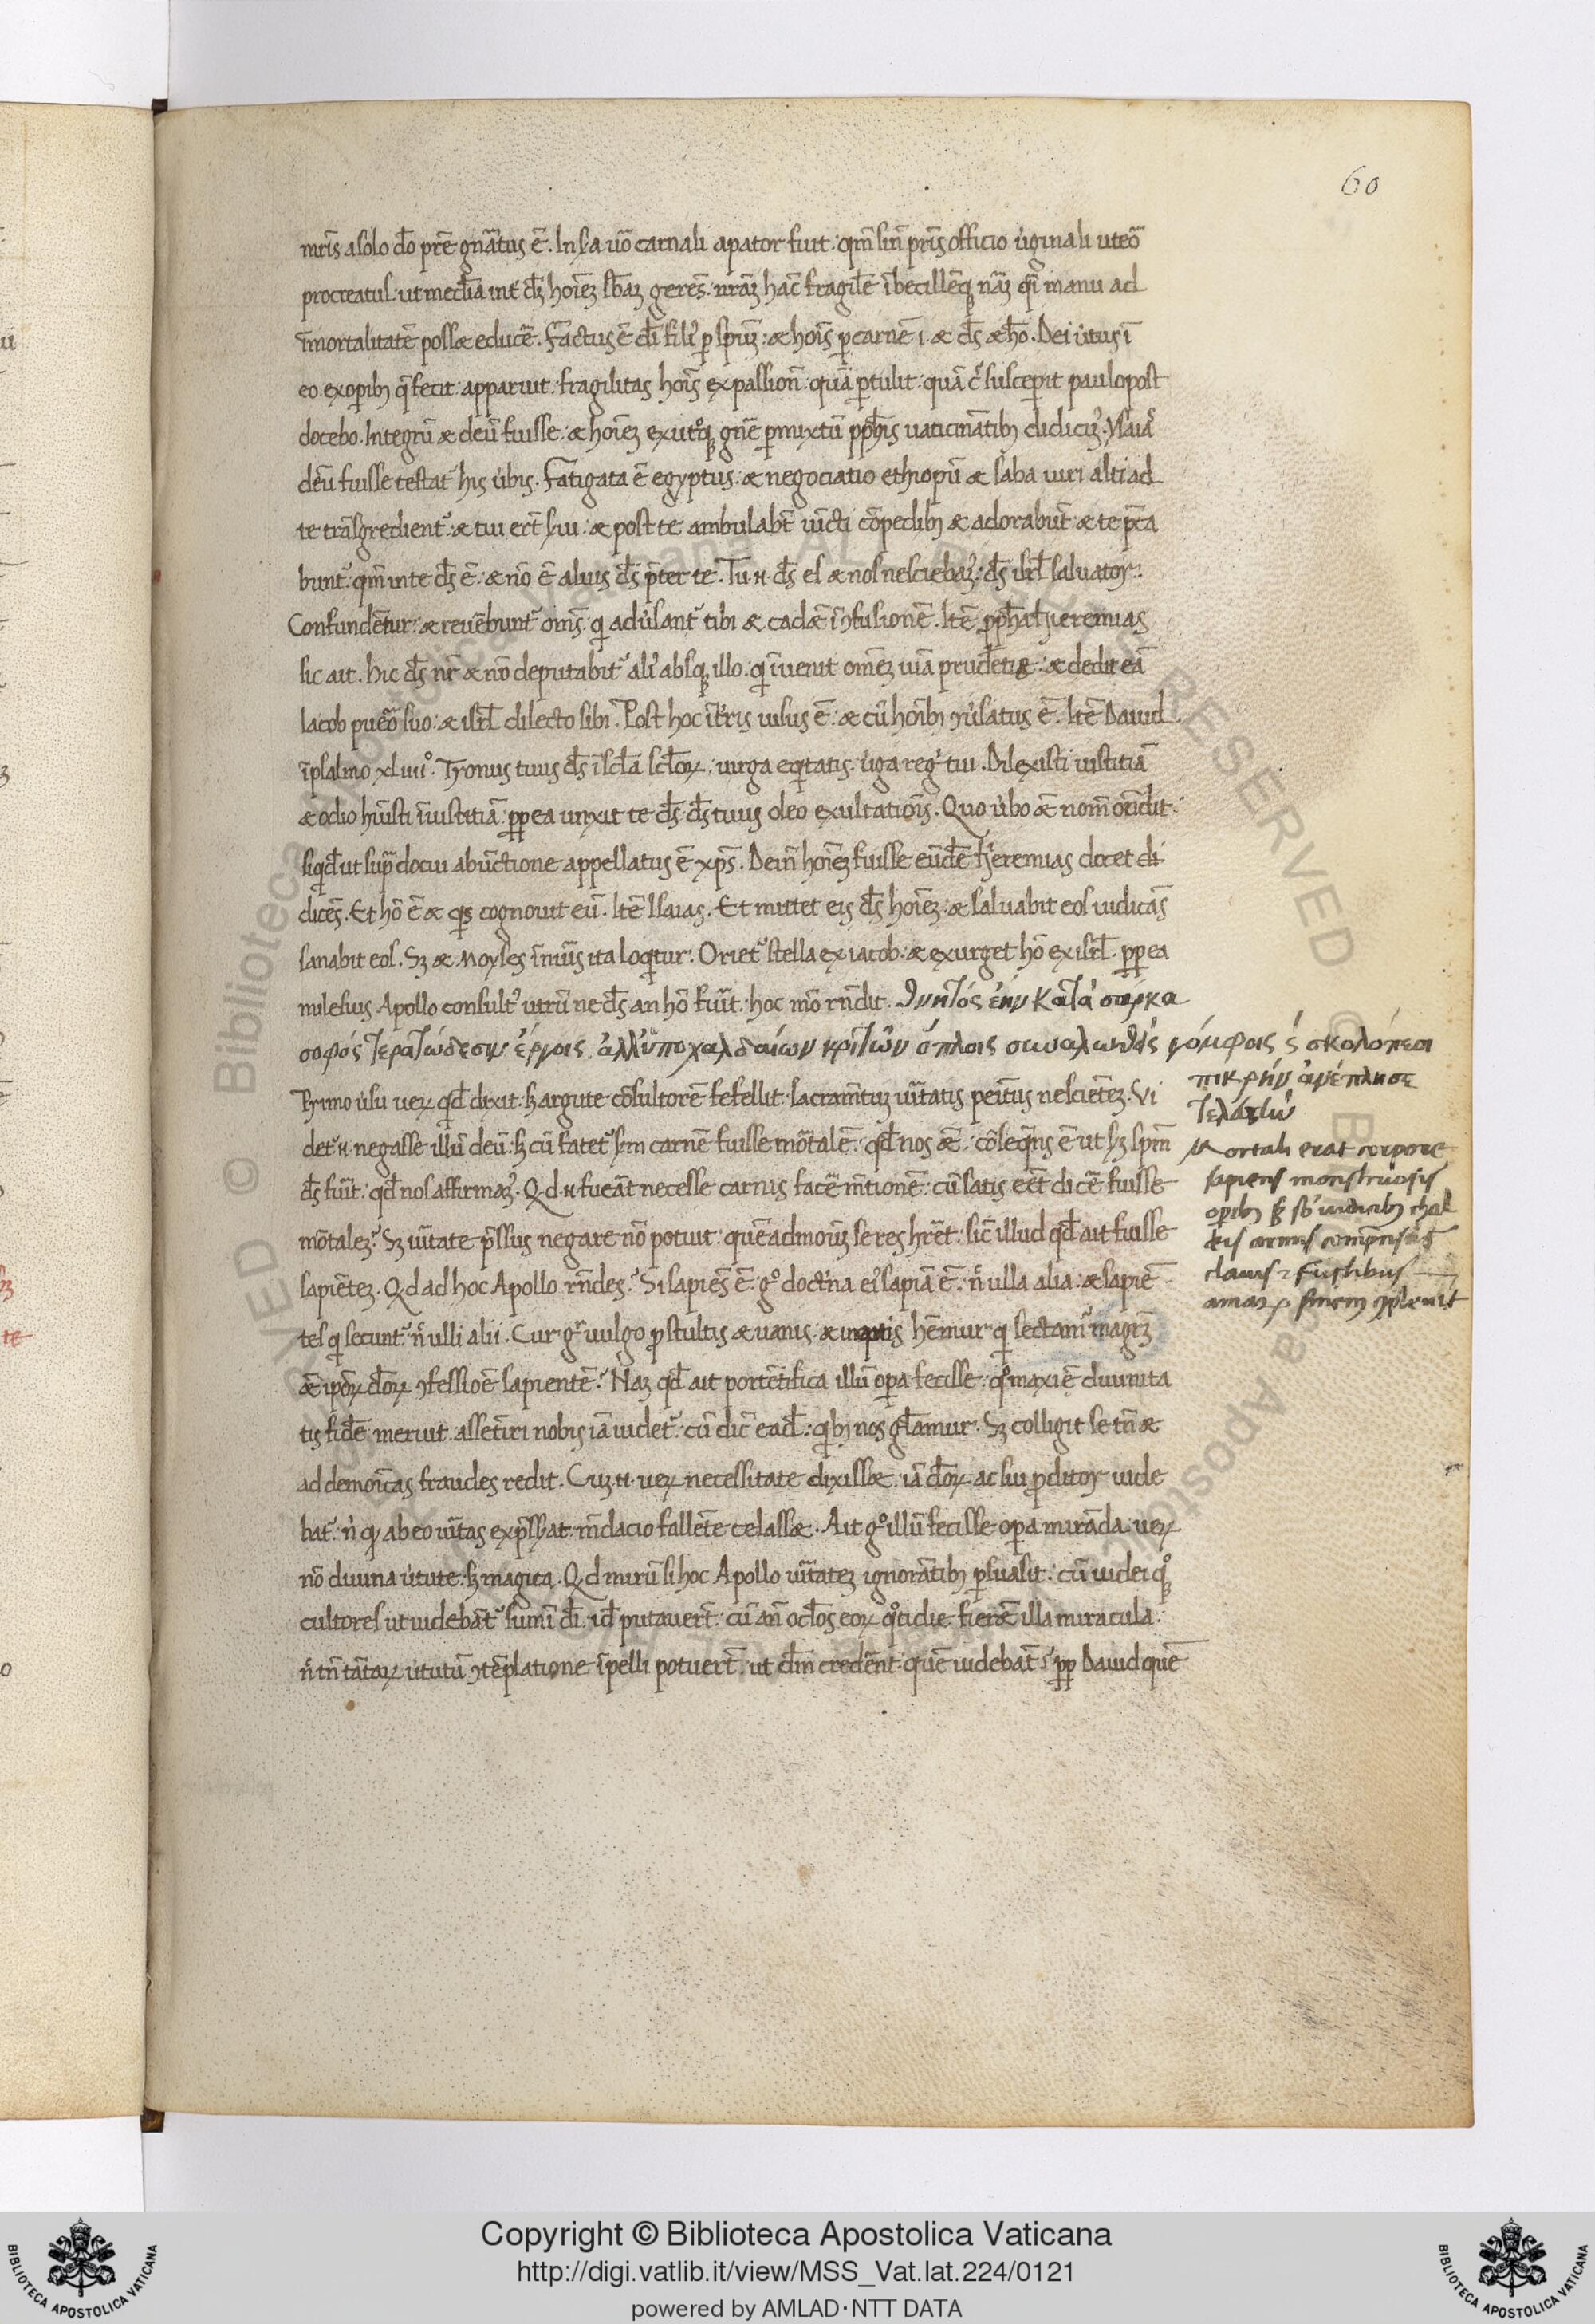 60
mr̄is a solo dō pr̄e gn̄atus ē. In sa uō carnali apator fuit. qm̄ sin̄ pr̄is officio uiginali uteō
procreatus. ut mediā int̄ dm̄ hoiez sb̄az gerēs. nr̄az hāc fragilē ibecillēq; nāz qi manu ad
īmortalitatē possæ educē. Factus ē dī fili' p sp̄uz. æ hoīs p carnē i. æ ds̄ æ hō. Dei ùtus ī
eo ex opib; q̄ fecit. apparuit. fragilitas hoīs ex passion̄. quā ptulit. quā c' suscepit paulo post
docebo. Integrū æ deū fuisse. æ hoiez ex utoq; gn̄e pmixtū pph̄is uaticinātib; didicim'. Ysaia
deū fuisse testat' his ùbis. Fatigata ē egyptus. æ negociatio ethiopū æ saba uiri alti ad
te trāsgredient'. æ tui ert̄ sui. æ post te ambulabt̄ uīcti cōpedib; æ adorabūt æ te p̄ca
bunt'. qm̄ in te ds̄ ē. æ nō ē alius ds̄ p̄ter te. Tu .n. ds̄ es æ nos nesciebam'. ds̄ isrl̄ saluator.
Confundētur. æ reuēbunt' om̄s. qi adùsant' tibi æ cadæ īfusionē. Itē pph̄a hieremias
sic ait. Hic ds̄ nr̄ æ nō deputabit' ali' absq; illo. qi īuenit omēz uiā prudētiæ. æ dedit eā
Iacob pueō suo. æ isrl̄ dilecto sibi. Post hoc ī tr̄is uisus ē. æ cū hoib; 9ùsatus ē. Itē Dauid
ī psalmo xliiii°. Tronus tuus ds̄ ī scl̄a scl̄oꝝ. uirga eqitatis. ùga reg' tui. Dilexisti iustitiā
æ odio huisti iniustitiā. pp ea unxit te ds̄ ds̄ tuus oleo exultatiois. Quo ùbo æ nom̄ ostēdit.
siqd̄ ut sup̄ docui ab ūctione appellatus ē xp̄s. Dein̄ hoiez fuisse eūdē hieremias docet di
dicēs. Et hō ē æ qis cognouit eū. Itē Isaias. Et mittet eis ds̄ hoiez. æ saluabit eos iudicās
sanabit eos. Sz æ Moyses ī nuīs ita loqitur. Oriet' stella ex iacob. æ exurget hō ex isrl̄. pp ea
milesius Apollo consult' utrū ne ds̄ an hō fuit. hoc mō rn̄dit. θνητός ἔην κατὰ σάρκα
σοφός τερατώδεσιν ἔργοις ἀλλ' ὑπο χαλδαίων κριτῶν ὅπλοις συναλωθεὶς γόμφοις ϛ σκολόπεσι
πικρὴν ἀνέπλησε
τελευτὴν
Primo ùsu ueꝝ qd̄ dixit. sz argute cōsultorē fefellit. sacramtuz uitatis peitus nescietez. Vi
det' .n. negasse illū deū. sz cū fatet' scm carnē fuisse mōtalē. qd̄ nos æ. cōseqens ē ut sz sp̄m
ds̄ fuit. qd̄ nos affirmam'. Q d .n. fueat necesse carnis facē mtionē. cū satis eēt dicē fuisse
mōtalez? Sz uitate p̄ssus negare nō potuit. quēadmoduz se res hr̄et. sic illud qd̄ ait fuisse
sapiētez. Q d ad hoc Apollo rn̄des? Si sapiēs ē. g° doctina ei' sapia ē. n̄ ulla alia. æ sapiē
tes qi secunt'. n̄ ulli alii. Cur g° uulgo p stultis æ uanis. æ ineptis hēmur qi sectam' magrz
æ ipōꝝ dōꝝ 9fessioē sapientē? Naz qd̄ ait portētifica illū opa fecisse. q° maxiē diuinita
tis fidē meruit. assētiri nobis iā uidet'. cū dic̄ eadē. qib; nos gl̄amur. Sz colligit se tn̄ æ
ad demoīcas fraudes redit. Cuz .n. ueꝝ necessitate dixissæ. iā dōꝝ ac sui pditor uide
bat'. n' qi ab eo uitas expssat mdacio fallēte celassæ. Ait g° illū fecisse opa mirāda. ueꝝ
nō diuina ùtute. sz magica. Q d mirū si hoc Apollo uitatez ignorātib; psuasit. cū iudei q°q;
cultores ut uidebāt' sumī dī. id̄ putauert̄. cū an̄ ocl̄os eoꝝ qotidie fieræ illa miracula.
n' tn̄ tātaꝝ ùtutū 9tēplatione īpelli potuert̄. ut dm̄ credēnt. quē uidebāt? pp Dauid quē
Mortali erat corpore
sapiens monstruosis
opib; sz sb' iudicib; chal
deis armis comprensus
clauis ⁊ fustibus
amaꝝ finem 9pleuit
Copyright © Biblioteca Apostolica Vaticana
http://digi.vatlib.it/view/MSS_Vat.lat.224/0121
powered by AMLAD·NTT DATA
BIBLIOTECA APOSTOLICA VATICANA
BIBLIOTECA APOSTOLICA VATICANA